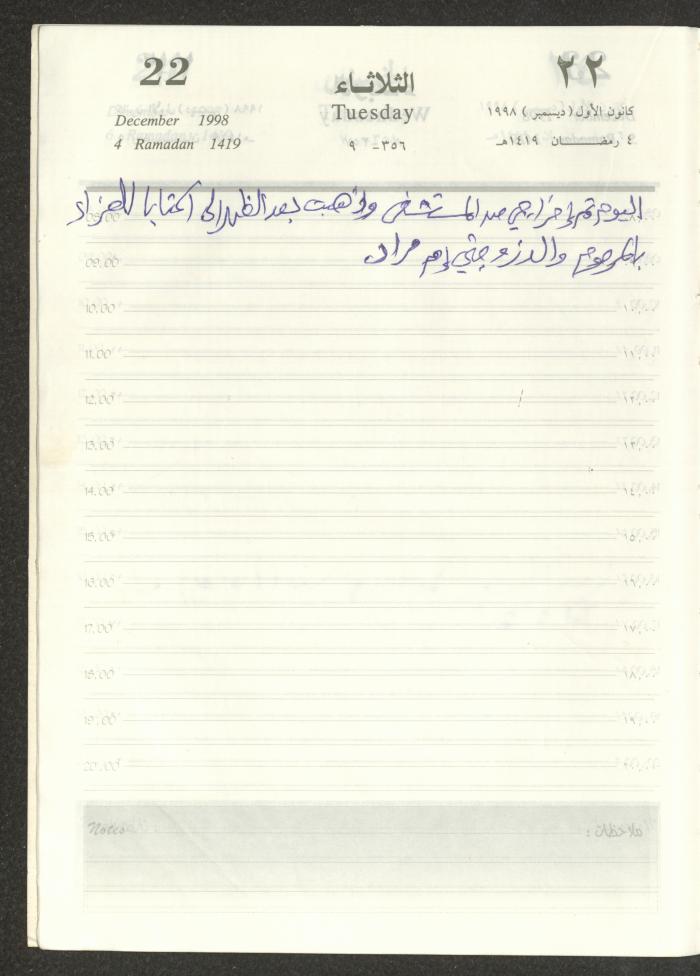 22 الثلاثاء ٢٢
December 1998 Tuesday كانون الأول (ديسمبر) ١٩٩٨
4 Ramadan 1419 ٩ ـ ٣٥٦ ٤ رمضان ١٤١٩هـ
اليوم تم إخراجي من المستشفى وذهبت بعد الظهر إلى للعزاء
بالمرحوم والد زوجتي إم مراد
09.00
10.00 ١٠.٠٠
11.00 ١١.٠٠
12.00 ١٢.٠٠
13.00 ١٣.٠٠
14.00 ١٤.٠٠
15.00 ١٥.٠٠
16.00 ١٦.٠٠
17.00 ١٧.٠٠
18.00 ١٨.٠٠
19.00 ١٩.٠٠
20.00 ٢٠.٠٠
Notes ملاحظات :